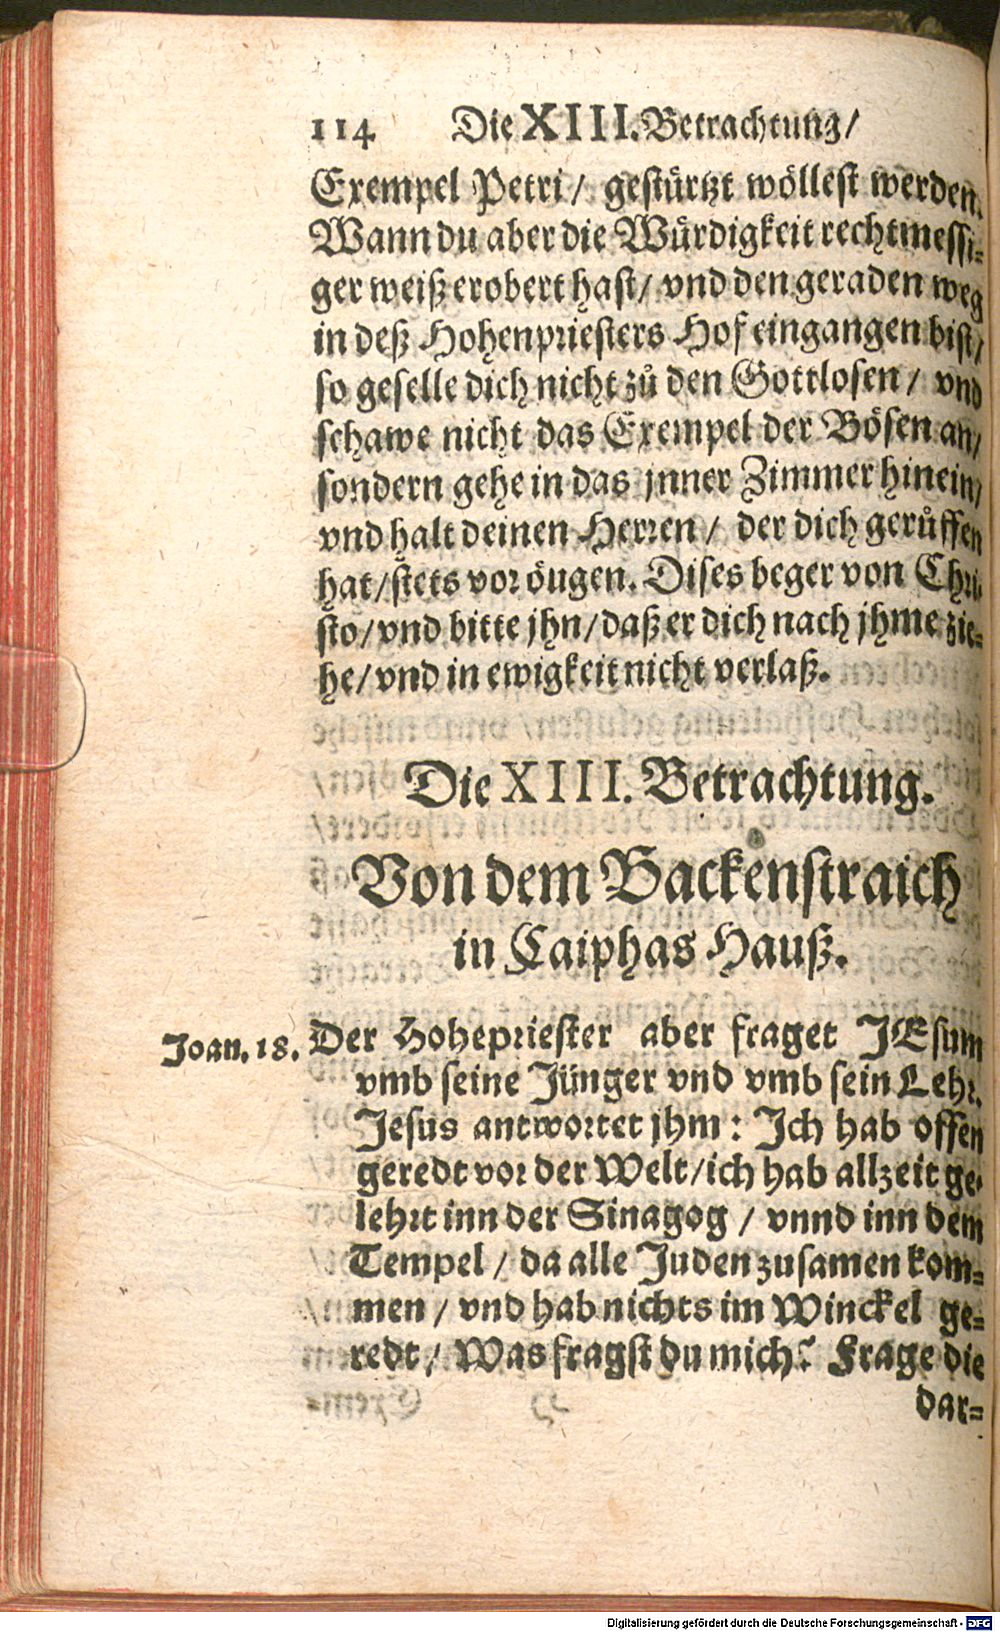 114 Die XIII. Betrachtung/
Exempel Petri/ gestürtzt wöllest werden.
Wann du aber die Würdigkeit rechtmessi-
ger weiß erobert hast/ vnd den geraden weg
in deß Hohenpriesters Hof eingangen bist/
so geselle dich nicht zů den Gottlosen/ vnd
schawe nicht das Exempel der Bösen an/
sondern gehe in das jnner Zimmer hinein/
vnd halt deinen Herren/ der dich gerůffen
hat/ stets vor öugen. Dises beger von Chri-
sto/ vnd bitte jhn/ daß er dich nach jhme zie-
he/ vnd in ewigkeit nicht verlaß.
Die XIII. Betrachtung.
Von dem Backenstraich
in Caiphas Hauß.
Joan. 18. Der Hohepriester aber fraget JEsum
vmb seine Jünger vnd vmb sein Lehr.
Jesus antwortet jhm: Ich hab offen
geredt vor der Welt/ ich hab allzeit ge-
lehrt inn der Sinagog/ vnnd inn dem
Tempel/ da alle Juden zusamen kom-
men/ vnd hab nichts im Winckel ge-
redt/ Was fragst du mich? Frage die
dar-
Digitalisierung gefördert durch die Deutsche Forschungsgemeinschaft - DFG